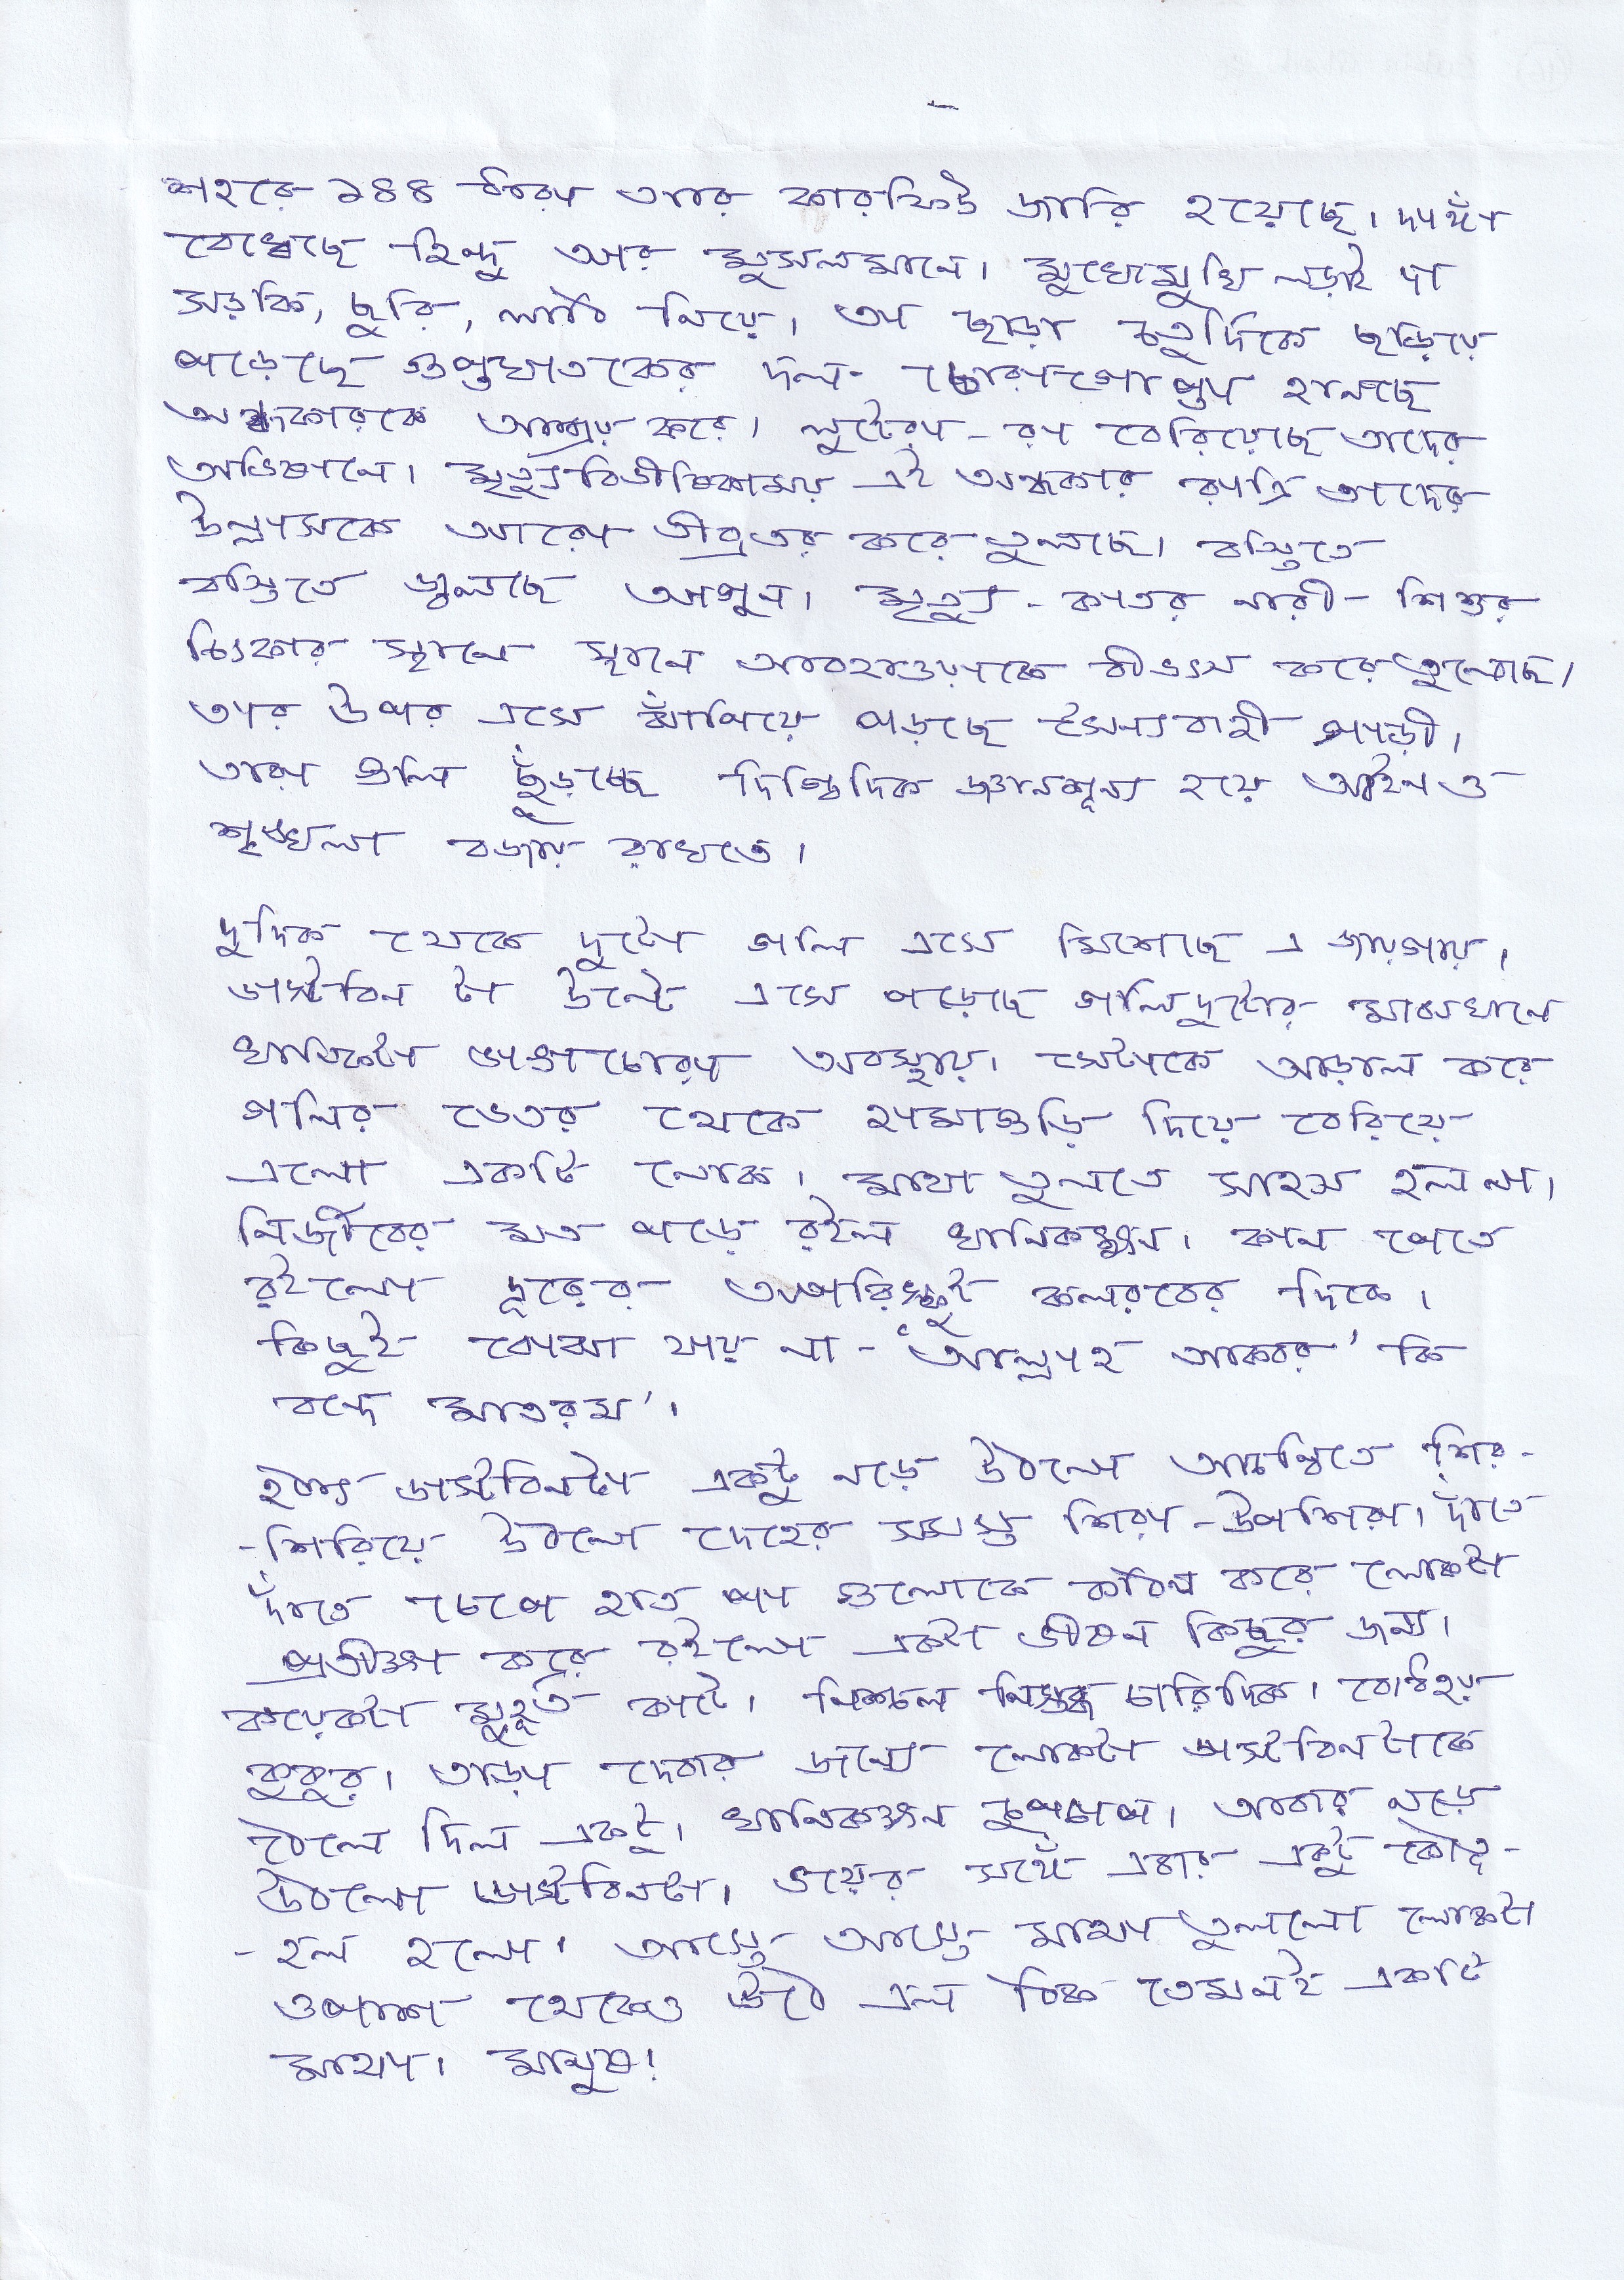 শহরে ১৪৪ ধারা আর কারফিউ জারি হয়েছে। দাঙ্গা
বেধেছে হিন্দু আর মুসলমানে। মুখোমুখি লড়াই দা
সড়কি, ছুরি, লাঠি নিয়ে। তা ছাড়া চতুর্দিকে ছড়িয়ে
পড়েছে গুপ্তঘাতকের দল- চোরাগোপ্তা হানছে
অন্ধকারকে আশ্রয় করে। লুটেরা-রা বেরিয়েছে তাদের
অভিযানে। মৃত্যুবিভীষিকাময় এই অন্ধকার রাত্রি তাদের
উল্লাসকে আরো তীব্রতর করে তুলছে। বস্তিতে
বস্তিতে জ্বলছে আগুন। মৃত্যু-কাতর নারী-শিশুর
চিৎকার স্থানে স্থানে আবহাওয়াকে বীভৎস করে তুলেছে।
তার উপর এসে ঝাঁপিয়ে পড়ছে সৈন্যবাহী গাড়ী।
তারা গুলি ছুঁড়ছে দিগ্বিদিক জ্ঞানশূন্য হয়ে আইন ও
শৃঙ্খলা বজায় রাখতে।
দুদিক থেকে দুটো গলি এসে মিশেছে এ জায়গায়।
ডাস্টবিন টা উল্টে এসে পড়েছে গলিদুটোর মাঝখানে
খানিকটা ভাঙ্গাচোরা অবস্থায়। সেটাকে আড়াল করে
গলির ভেতর থেকে হামাগুড়ি দিয়ে বেরিয়ে
এলো একটি লোক। মাথা তুলতে সাহস হল না।
নির্জীবের মত পড়ে রইল খানিকক্ষন। কান পেতে
রইলো দূরের অপরিস্ফুট কলরবের দিকে।
কিছুই বোঝা যায় না - 'আল্লাহ আকবর' কি
বন্দে মাতরম'।
হঠাৎ ডাস্টবিনটা একটু নড়ে উঠলো আচম্বিতে শির-
-শিরিয়ে উঠলো দেহের সমস্ত শিরা-উপশিরা। দাঁতে
দাঁতে চেপে হাত পা গুলোকে কঠিন করে লোকটা
প্রতীক্ষা করে রইলো একটা ভীষন কিছুর জন্য।
কয়েকটা মুহূর্ত কাটে। নিশ্চল নিস্তব্ধ চারিদিক। বোধহয়
কুকুর। তাড়া দেবার জন্যে লোকটা ডাস্টবিনটাকে
ঠেলে দিল একটু। খানিকক্ষন চুপচাপ। আবার নড়ে
উঠলো ডাস্টবিনটা। ভয়ের সঙ্গে এবার একটু কৌতূ-
-হল হলো। আস্তে আস্তে মাথা তুললো লোকটা
ওপাশ থেকেও উঠে এল ঠিক তেমনই একটি
মাথা। মানুষ!